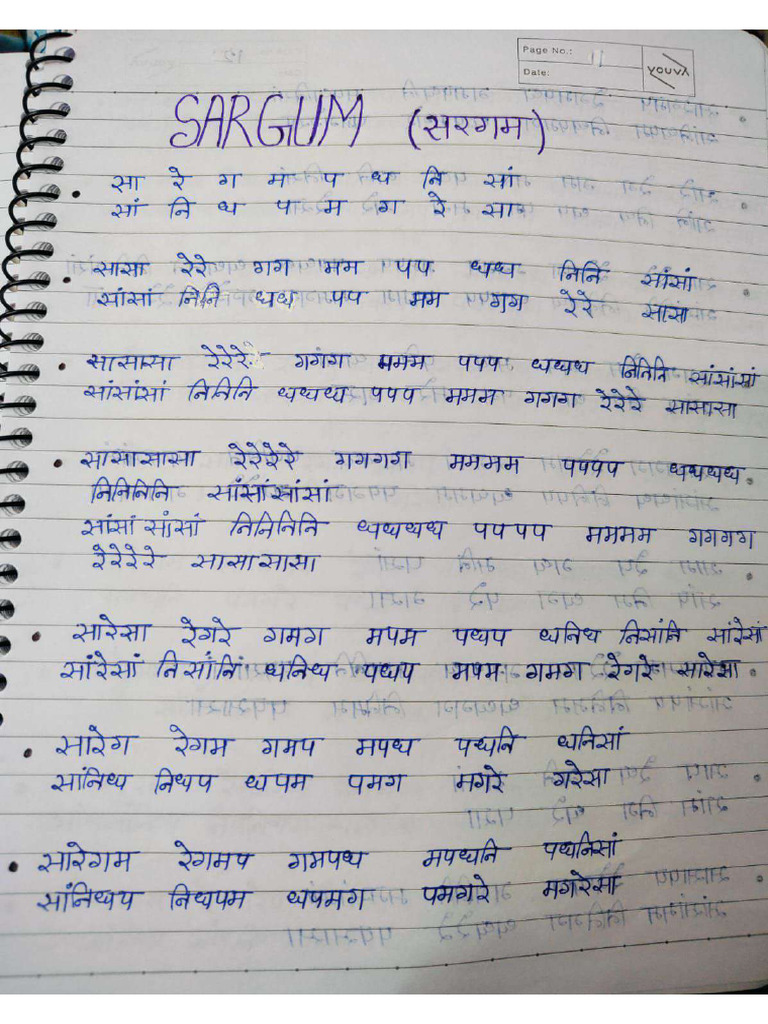 Page No.: 11
Date:
YOUVA
SARGUM (सरगम)
• सा रे ग मं प ध नि सां
सां नि ध प म ग रे सा
• सासा रेरे गग मम पप धध निनि सांसां
सांसां निनि धध पप मम गग रेरे सासा
• सासासा रेरेरे गगंग ममम पपप धधध निनिनि सांसांसां
सांसांसां निनिनि धधध पपप ममम गगग रेरेरे सासासा
• सांसासासा रेरेरेरे गगगग मममम पपपप धधधध
निनिनिनि सांसांसांसां
सांसांसांसां निनिनिनि धधधध पपपप मममम गगगग
रेरेरेरे सासासासा
• सारेसा रेगरे गमग मपम पधप धनिध निसांनि सांरेसां
सांरेसां निसांनि धनिध पधप मपम गमग रेगरे सारेसा
• सारेग रेगम गमप मपध पधनि धनिसां
सांनिध निधप धपम पमग मगरे गरेसा
• सारेगम रेगमप गमपध मपधनि पधनिसां
सांनिधप निधपम धपमंग पमगरे मगरेसा